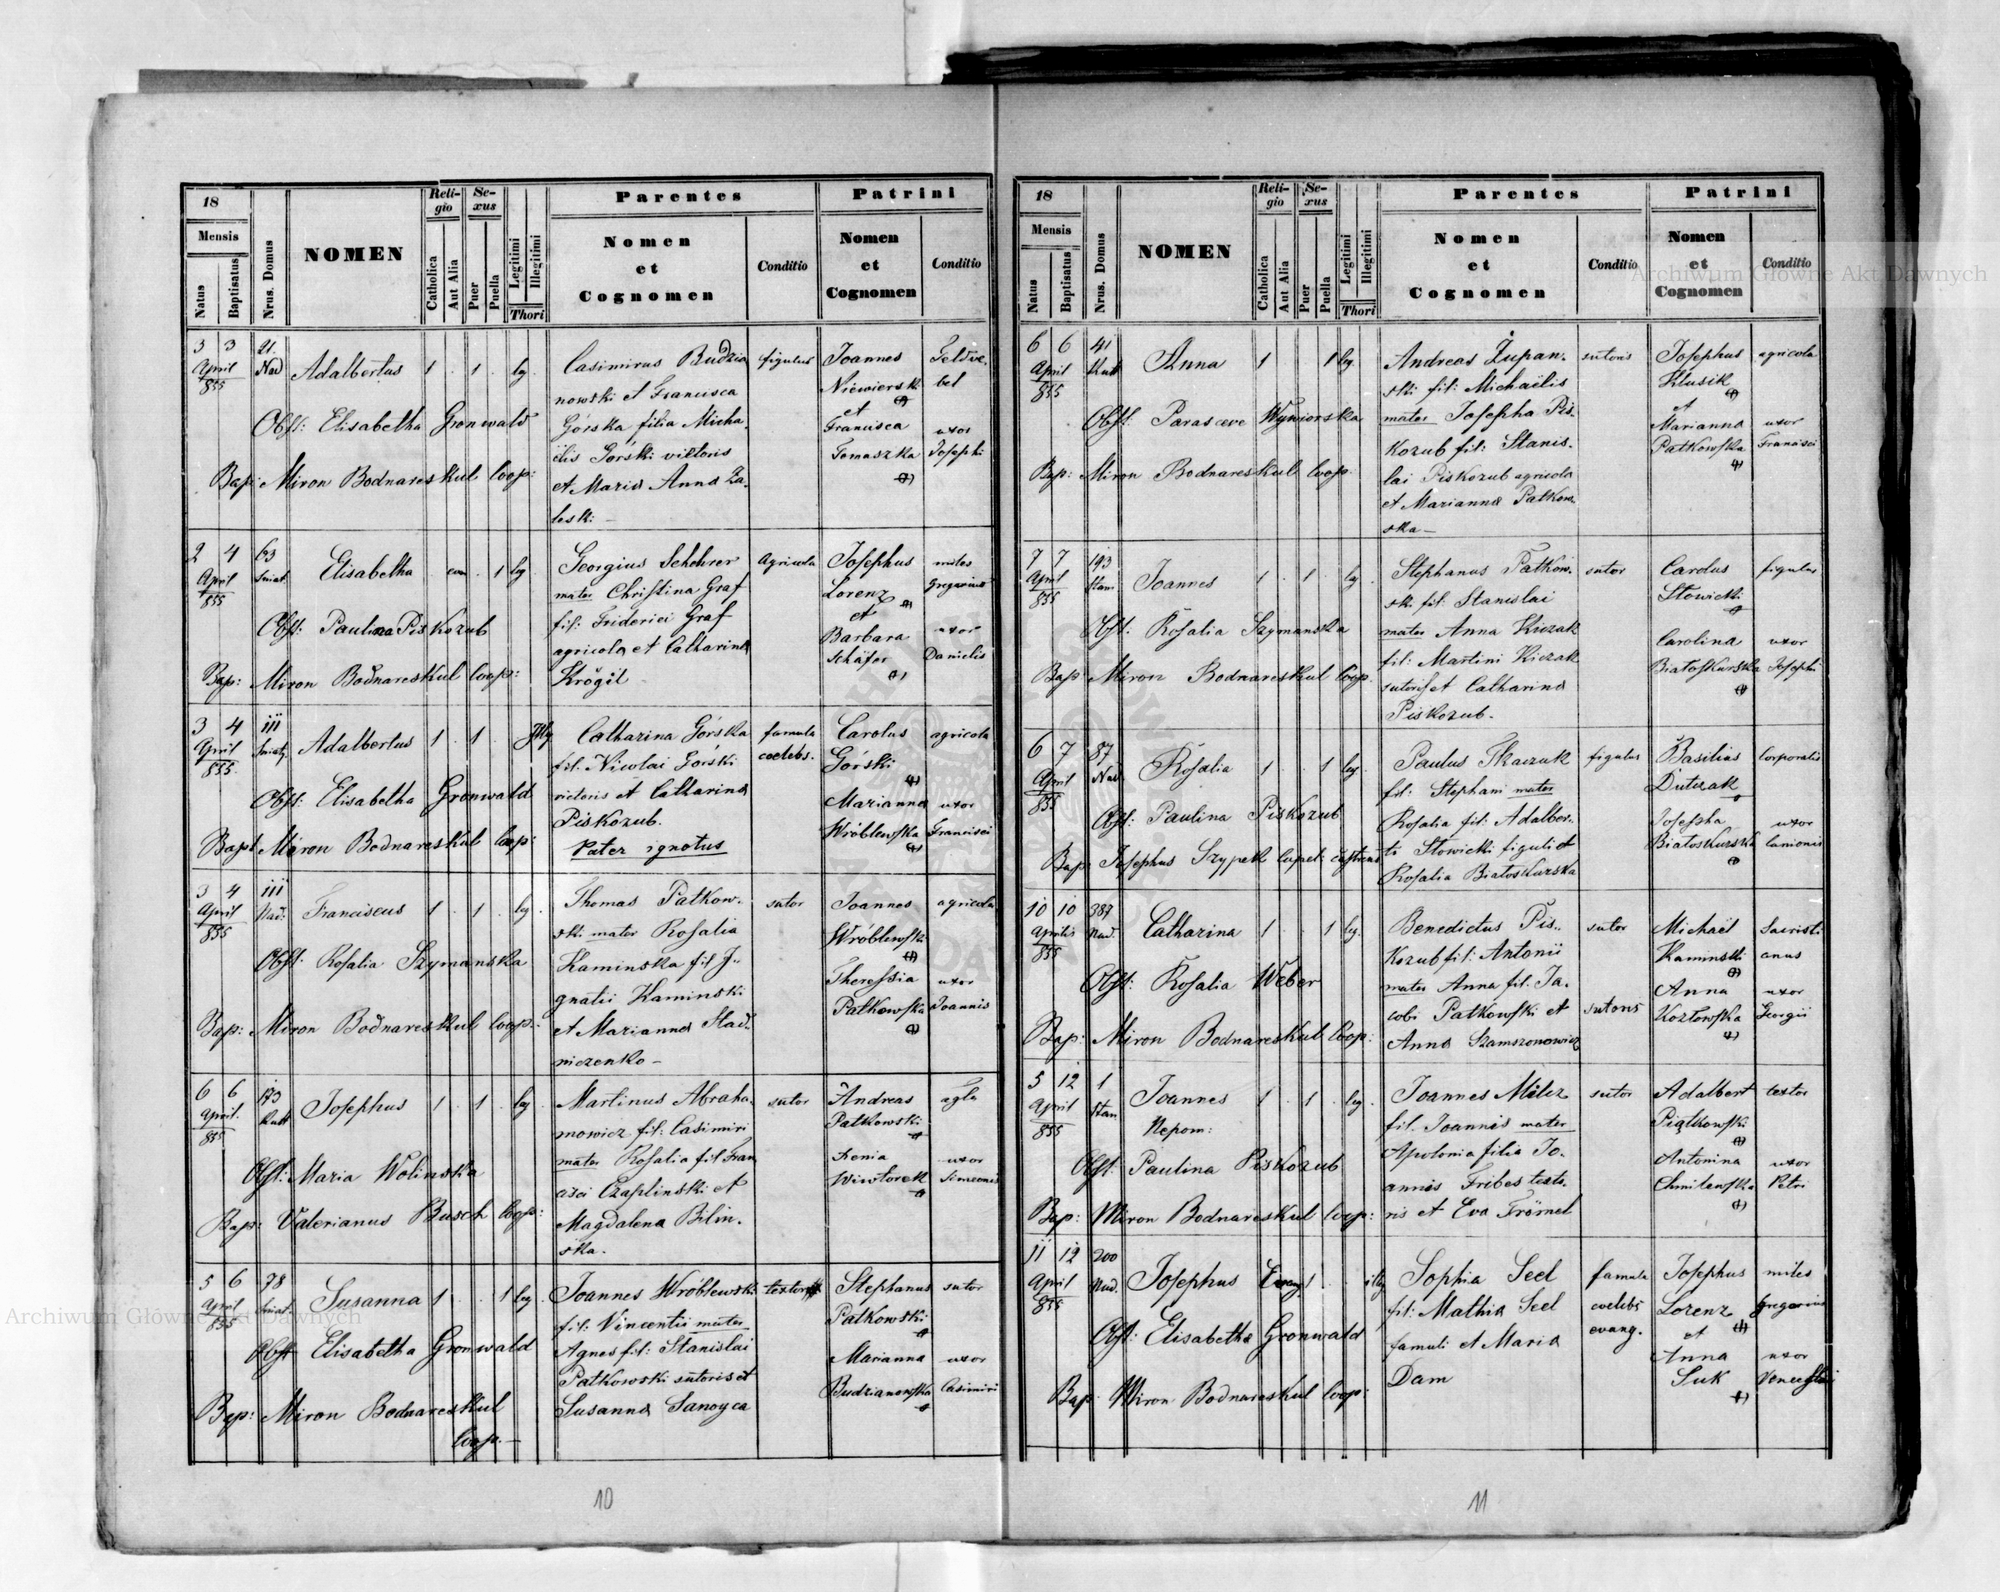 18
Mensis
Natus
Baptisatus
Nrus. Domus
NOMEN
Religio
Catholica
Aut Alia
Sexus
Puer
Puella
Legitimi
Illegitimi
Thori
Parentes
Nomen
et
Cognomen
Conditio
Patrini
Nomen
et
Cognomen
Conditio
3 3 21
April Nad Adalbertus 1 1 leg
855
Obst: Elisabetha Gronwald
Bap: Miron Bodnareskul Coop:
Casimirus Budzia
nowski et Francisca
Górska filia Micha
ëlis Górski victoris
et Maria Anna Za-
leski
figulus
Joannes
Niewierski
et
Francisca
Tomaszka
Feldwe-
bel
uxor
Josephi
2 4 63
April Sniat. Elisabetha 1 leg
855
Obst: Paulina Piskozub
Bap: Miron Bodnareskul Coop:
Georgius Schehrer
mater Christina Graf
fil: Friderici Graf
agricola et Catharina
Krögil
Agricola
Josephus
Lorenz
et
Barbara
Schäfer
miles
Gregarius
uxor
Danielis
3 4 111
April Sniat. Adalbertus 1 1 Illeg
855
Obst: Elisabetha Gronwald
Bapt Miron Bodnareskul Coop:
Catharina Górska
fil: Nicolai Górski
victoris et Catharina
Piskozub.
Pater ignotus
famula
coelebs.
Carolus
Górski
Marianna
Wróblewska
agricola
uxor
Francisci
3 4 111
April Nad. Franciscus 1 1 leg
855
Obst: Rosalia Szymanska
Bap: Miron Bodnareskul Coop:
Thomas Patkow-
ski mater Rosalia
Kaminska fil J-
gnatii Kaminski
et Marianna Stad-
niczenko
sutor
Joannes
Wróblewski
Theressia
Patkowska
agricola
uxor
Joannis
6 6 173
April Kutt Josephus 1 1 leg
855
Obst: Maria Wolinska
Bap: Valerianus Busch Coop:
Martinus Abraha-
mowicz fil: Casimiri
mater Rosalia fil Fran
cisci Czaplinski et
Magdalena Bilin-
ska.
sutor
Andreas
Patkowski
Xenia
Wiwtorek
agla
uxor
Simeonis
5 6 78
April Sniat. Susanna 1 1 leg
855
Obst Elisabetha Gronwald
Bap: Miron Bodnareskul
Coop.
Joannes Wróblewski
fil: Vincentii mater
Agnes fil: Stanislai
Patkowski sutoris et
Susanna Sanoyca
textor
Stephanus
Patkowski
Marianna
Budzianowska
sutor
uxor
Casimiri
10
18
Mensis
Natus
Baptisatus
Nrus. Domus
NOMEN
Religio
Catholica
Aut Alia
Sexus
Puer
Puella
Legitimi
Illegitimi
Thori
Parentes
Nomen
et
Cognomen
Conditio
Patrini
Nomen
et
Cognomen
Conditio
6 6 41
April Kutt Anna 1 1 leg.
855
Obst: Parasceve Wyniorska
Bap: Miron Bodnareskul Coop:
Andreas Zupan-
ski fil: Michaëlis
mater Josepha Pis-
kozub fil: Stanis-
lai Piskozub agricola
et Marianna Patkow
ska
sutoris
Josephus
Klusik
et
Marianna
Patkowska
agricola
uxor
Francisci
7 7 193
April Stan. Joannes 1 1 leg
855
Obst: Rosalia Szymanska
Bap Miron Bodnareskul Coop.
Stephanus Patkow-
ski fil: Stanislai
mater Anna Kiczak
fil: Martini Kiczak
sutoris et Catharina
Piskozub.
sutor
Carolus
Stowicki
Carolina
Biatoskurska
figulus
uxor
Josephi
6 7 87
April Nad. Rosalia 1 1 leg
855
Obst: Paulina Piskozub
Bap Josephus Szypek Capel: castrens
Paulus Tkaczuk
fil: Stephani mater
Rosalia fil: Adalber-
ti Stowicki figuli et
Rosalia Biatoskurska
figulus
Basilius
Dutczak
Josepha
Biatoskurska
Corporalis
uxor
Lanionis
10 10 387
Aprilis Nad. Catharina 1 1 leg.
855
Obst: Rosalia Weber
Bap: Miron Bodnareskul Coop:
Benedictus Pis-
kozub fil: Antonii
mater Anna fil. Ja-
cobi Patkowski et
Anna Szamszonowicz
sutor
sutoris
Michaël
Kaminski
Anna
Koztowska
Sacristi
anus
uxor
Georgii
5 12 1
April Stan Joannes 1 1 leg.
855 Nepom:
Obst: Paulina Piskozub
Bap: Miron Bodnareskul Coop:
Joannes Milcz
fil. Joannis mater
Apolonia filia Jo-
annis Fribes texto-
ris et Eva Frömel
sutor
Adalbert
Piątkowski
Antonina
Chmilewska
textor
uxor
Petri
11 12 200
April Nad. Josephus Evang 1 illeg
855
Obst: Elisabetha Gronwald
Bap Miron Bodnareskul Coop:
Sophia Seel
fil: Mathia Seel
famuli et Maria
Dam
famula
coelebs
evang.
Josephus
Lorenz
et
Anna
Suk
miles
gregarius
uxor
Venceslai
11
Archiwum Główne Akt Dawnych
Archiwum Główne Akt Dawnych